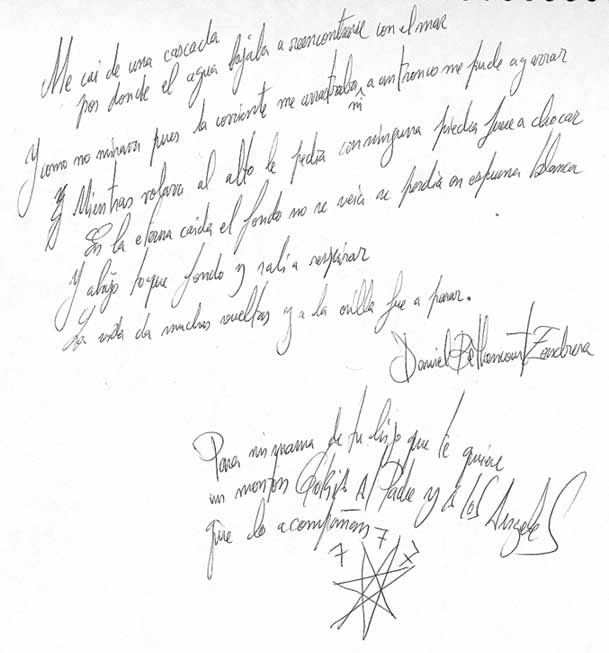 Me cai de una cascada
por donde el agua bajaba a reencontrarse con el mar
Y como no mirava pues la corriente me arrastraba, a un tronco me pude agarrar
ni
Y Mientras volava al alto le pedia con ninguna piedra fuera a chocar
En la eterna caida el fondo no se veia se perdia en espuma blanca
Y abajo toque fondo y sali a respirar
La vida da muchas vueltas y a la orilla fue a parar.
Daniel Bethencourt Zendrera
Para mi mama de tu hijo que te quiere
un monton Padre y de los Angeles
que lo acompañan
7 7 7